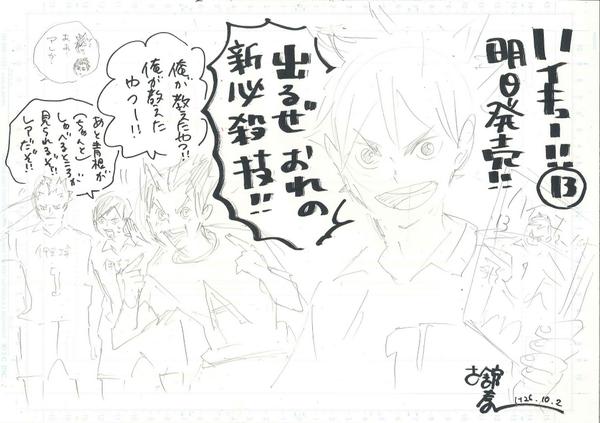 ハイキュー!!
⑬
明日発売!!
出るぜ おれの
新必殺技!!
俺が教えたやつ!!
俺が教えた
やつー!!
あと青根が
ちゃんと
しゃべるところが
見られるぞ!!
レアだぞ!!
おお
アレか
伊達工
1
A
古舘
春一
H26.10.2